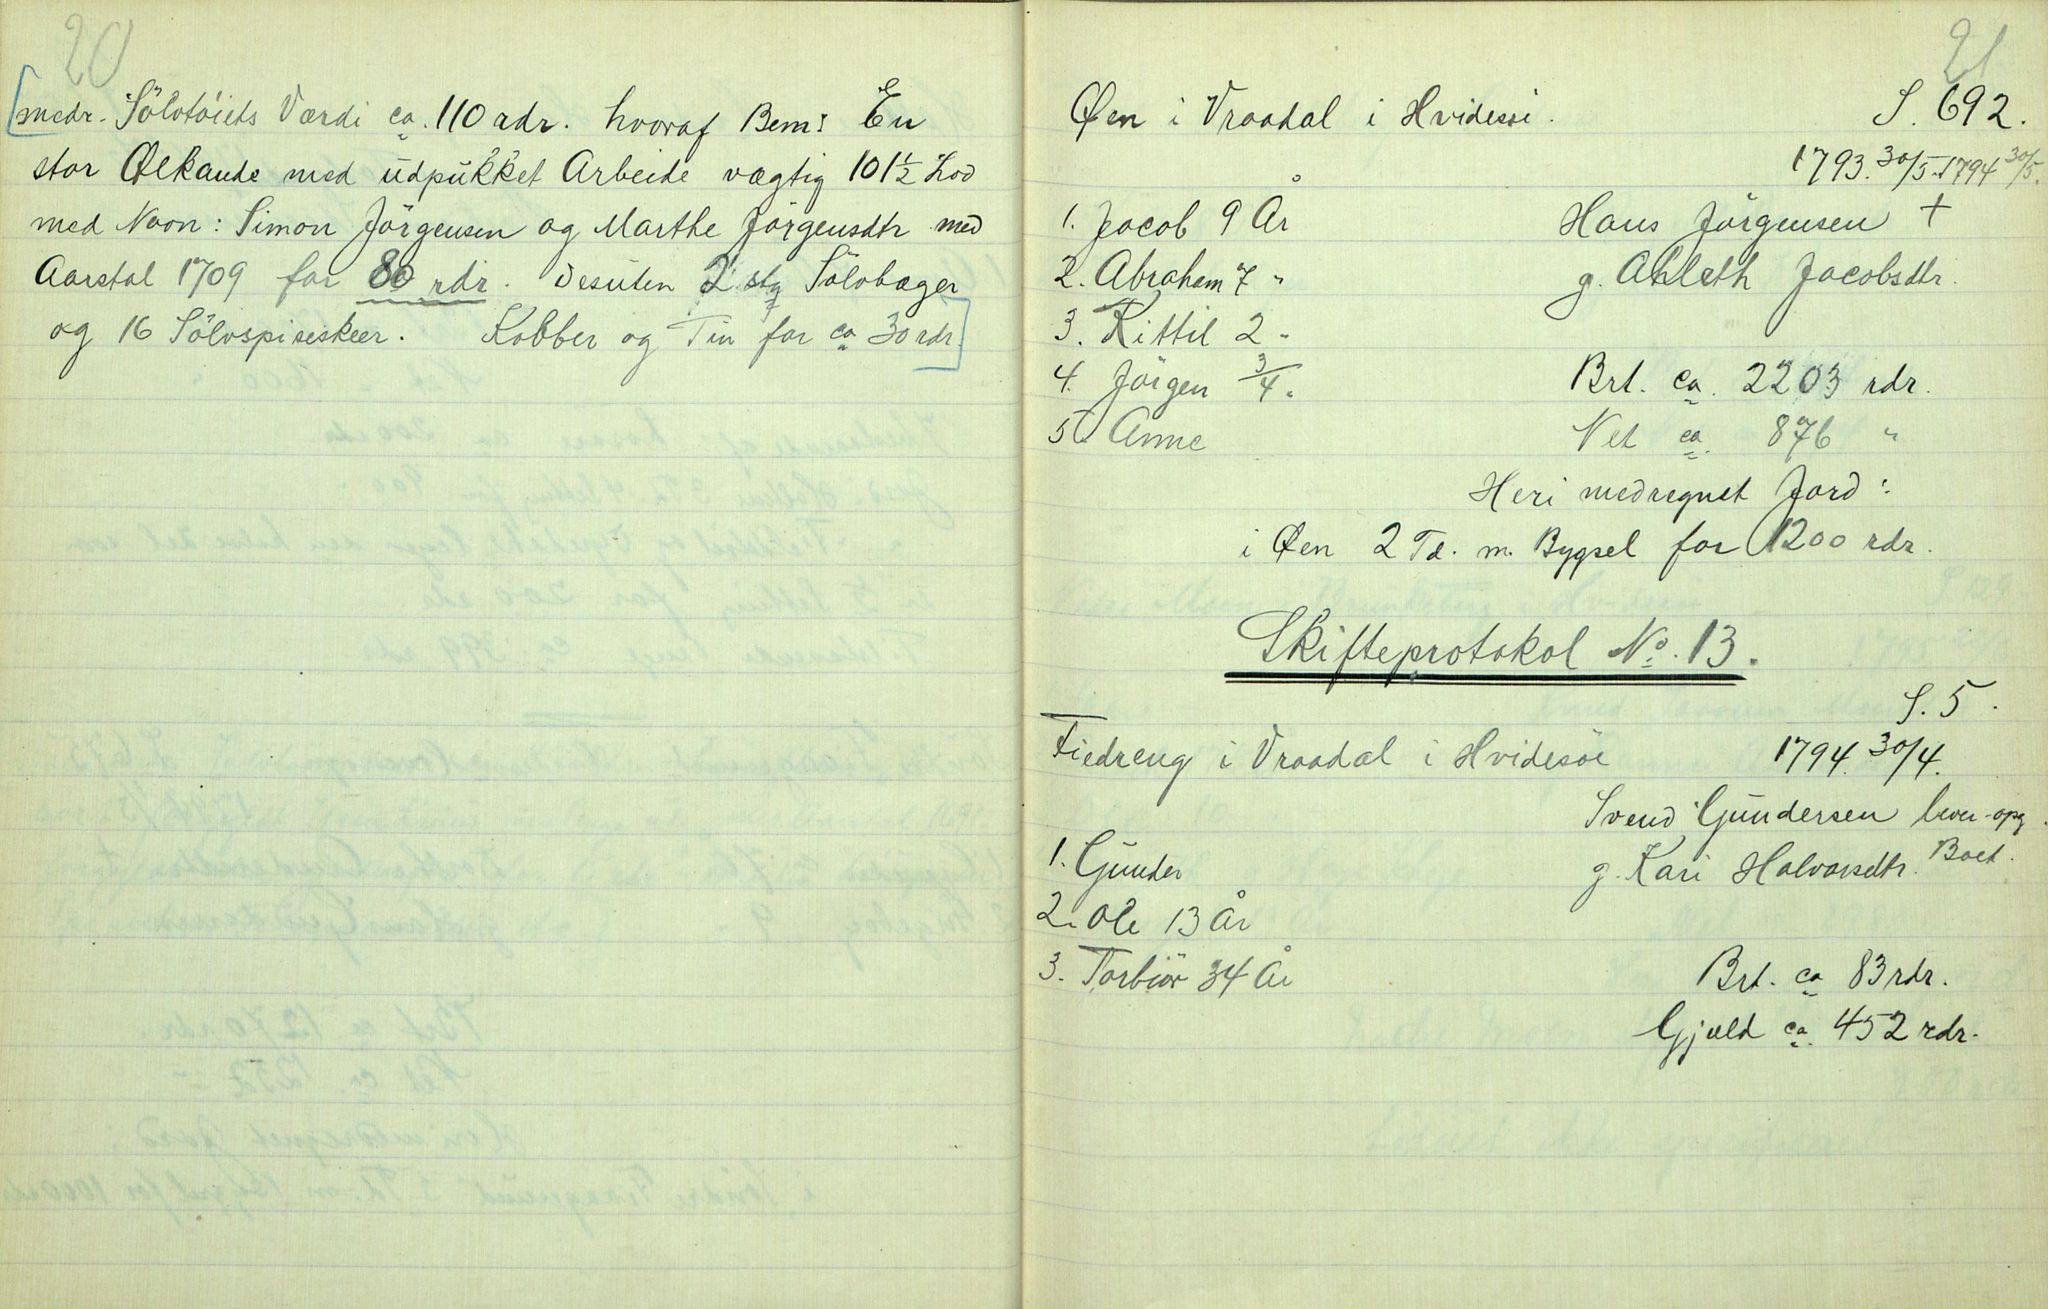 20
medr. Sölvtöiets Værdi ca. 110 rdr. hvoraf Bem: En
stor Ølkande med udpukket Arbeide vægtig 101½ Lod
med Navn: Simon Jörgensen og Marthe Jörgensdtr med
Aarstal 1709 for 80 rdr. Desuten 2 stg Sölvbæger
og 16 Sölvspiseskeer. Kobber og Tin for ca 30 rdr.
21
Øen i Vraadal i Hvidesøi. S. 692.
1793. 30/5. 1794 30/5.
1. Jacob 9 År Hans Jörgensen †
2. Abraham 7 " g. Ahleth Jacobsdtr.
3. Kittil 2 "
4. Jörgen 3/4 " Brt. ca. 2203 rdr.
5. Anne Net ca. 876 "
Heri medregnet Jord:
i Øen 2 Td. m. Bygsel for 1200 rdr.
Skifteprotokol No. 13.
S. 5.
Fiedreng i Vraadal i Hvidesøe 1794. 30/4.
Svend Gundersen lever - opg.
1. Gunder g. Kari Halvorsdtr. Boet.
2. Ole 13 År
3. Torbiör 34 År Brt. ca 83 rdr.
Gjæld ca. 452 rdr.